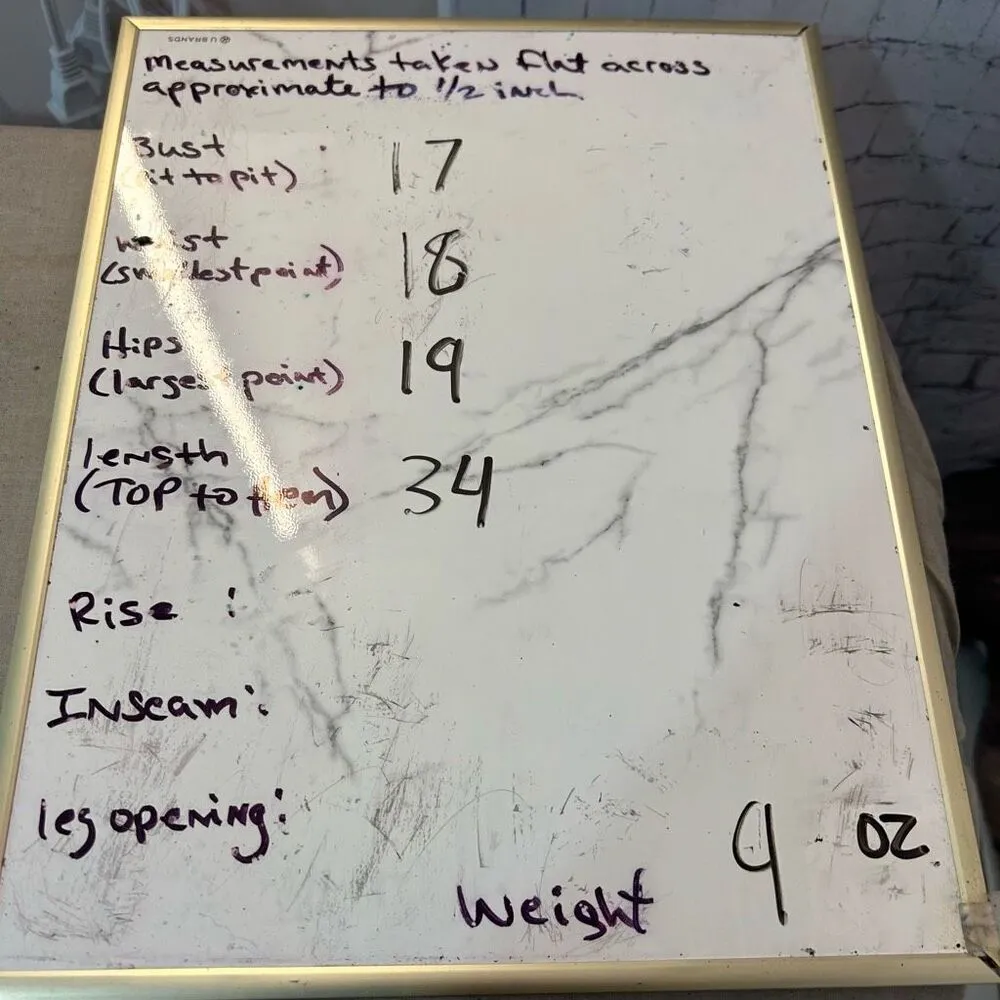 U BRANDS
measurements taken flat across
approximate to 1/2 inch
Bust : 17
(pit to pit)
waist 18
(smallest point)
Hips 19
(largest point)
length 34
(TOP to Hem)
Rise :
Inseam :
leg opening :
9 OZ
Weight